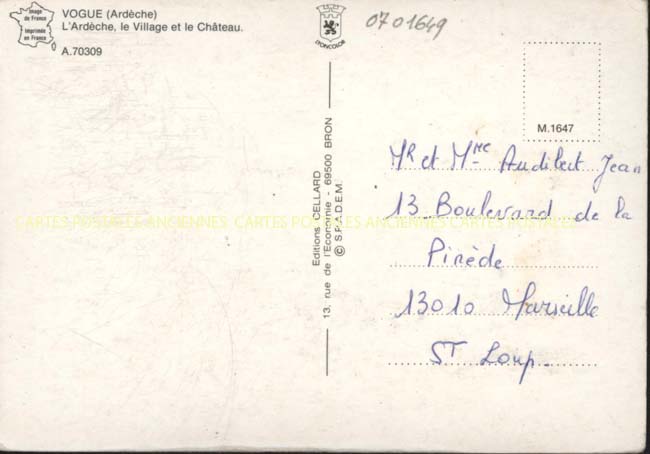 Image
de France
Imprimée
en France
VOGUE (Ardèche)
L'Ardèche, le Village et le Château.
A.70309
LYONCOLOR
0701649
M.1647
Editions CELLARD
13, rue de l'Economie - 69500 BRON
© S.P.A.D.E.M.
Mr et Mme Audibert Jean
13 Boulevard de la
Pinède
13010 Marseille
ST Loup.
CARTES POSTALES ANCIENNES CARTES POSTALES ANCIENNES CARTES POSTALES